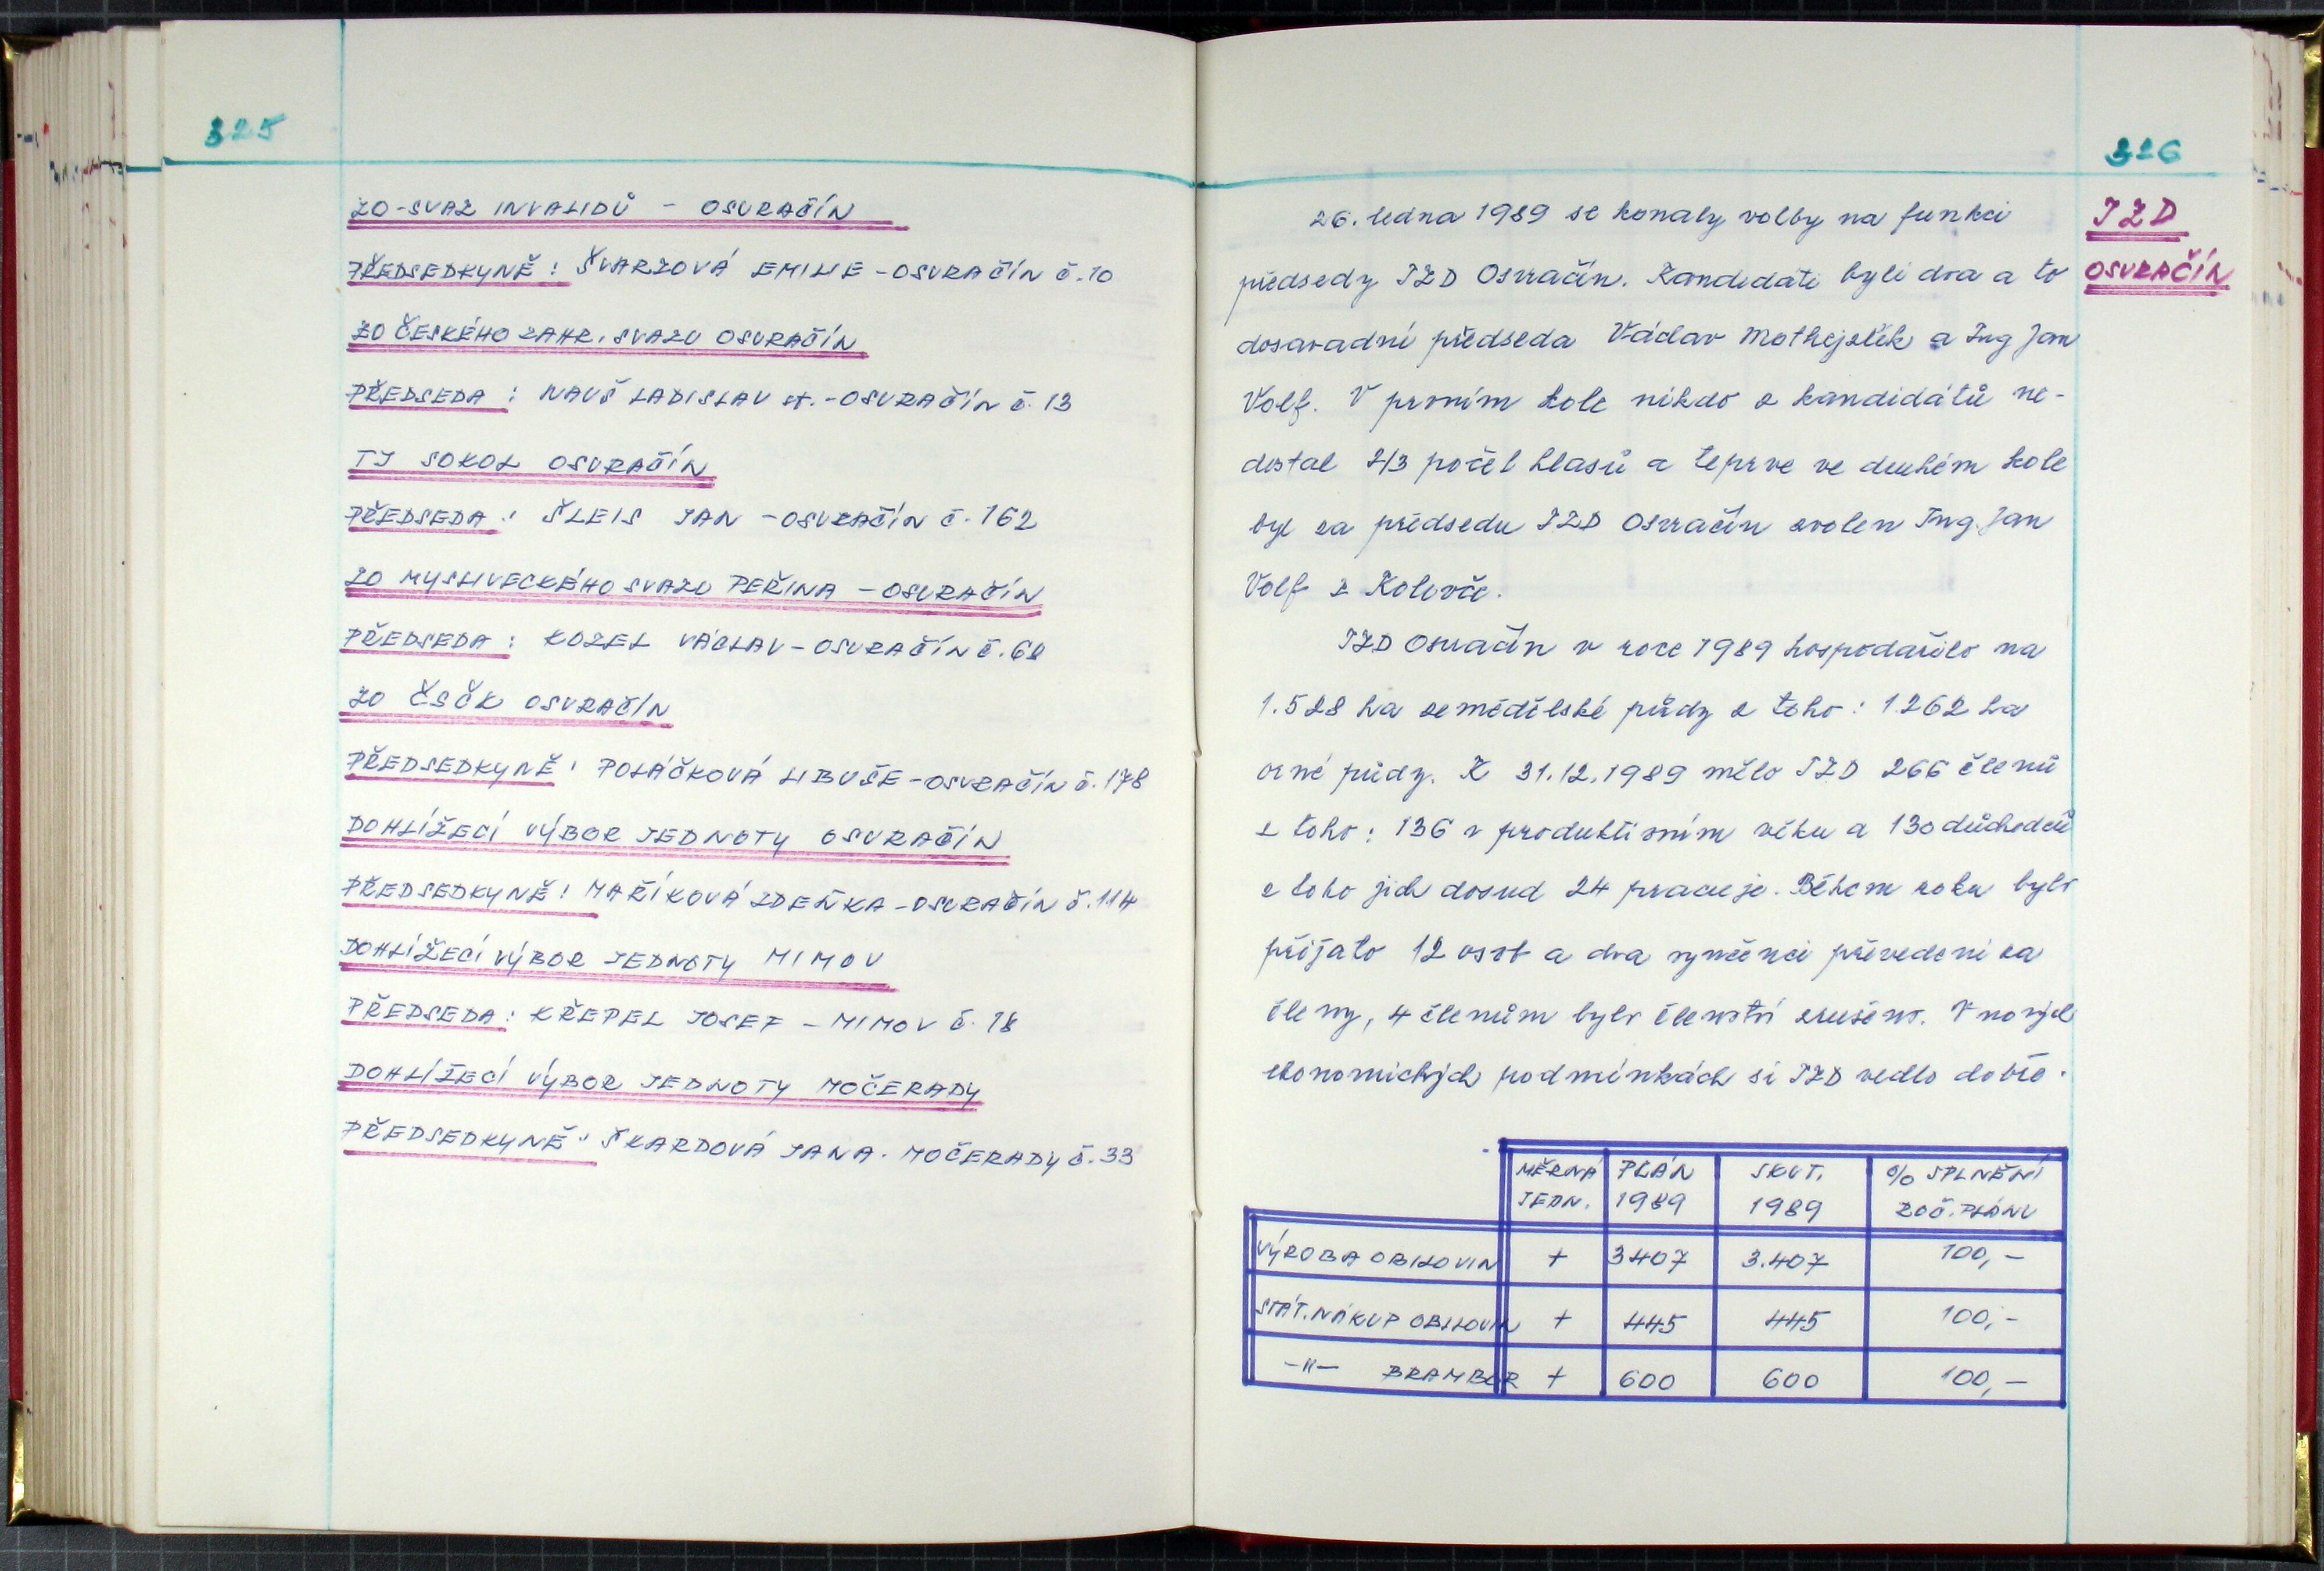 325
ZO-SVAZ INVALIDŮ - OSVRAČÍN
PŘEDSEDKYNĚ: ŠVARZOVÁ EMILIE - OSVRAČÍN č. 10
ZO ČESKÉHO ZAHR. SVAZU OSVRAČÍN
PŘEDSEDA: NAUŠ LADISLAV st. - OSVRAČÍN č. 13
TJ SOKOL OSVRAČÍN
PŘEDSEDA: ŠLEIS JAN - OSVRAČÍN č. 162
ZO MYSLIVECKÉHO SVAZU PEŘINA - OSVRAČÍN
PŘEDSEDA: KOZEL VÁCLAV - OSVRAČÍN č. 68
ZO ČSČK OSVRAČÍN
PŘEDSEDKYNĚ: POLÁČKOVÁ LIBUŠE - OSVRAČÍN č. 178
DOHLÍŽECÍ VÝBOR JEDNOTY OSVRAČÍN
PŘEDSEDKYNĚ: MAŘÍKOVÁ ZDEŇKA - OSVRAČÍN č. 114
DOHLÍŽECÍ VÝBOR JEDNOTY MIMOV
PŘEDSEDA: KŘEPEL JOSEF - MIMOV č. 18
DOHLÍŽECÍ VÝBOR JEDNOTY MOČERADY
PŘEDSEDKYNĚ: ŠKARDOVÁ JANA - MOČERADY č. 33
326
JZD
OSVRAČÍN
26. ledna 1989 se konaly volby na funkci
předsedy JZD Osvračín. Kandidáti byli dva a to
dosavadní předseda Václav Mathejslík a Ing Jan
Volf. V prvním kole nikdo z kandidátů ne-
dostal 2/3 počet hlasů a teprve ve druhém kole
byl za předsedu JZD Osvračín zvolen Ing. Jan
Volf z Kolovče.
JZD Osvračín v roce 1989 hospodařilo na
1.528 ha zemědělské půdy z toho: 1.262 ha
orné půdy. K 31.12.1989 mělo JZD 266 členů
z toho: 136 v produktivním věku a 130 důchodců
z toho jich dosud 24 pracuje. Během roku bylo
přijato 12 osob a dva vyučenci převedeni za
členy, 4 členům bylo členství zrušeno. V nových
ekonomických podmínkách si JZD vedlo dobře.
MĚRNÁ JEDN. PLÁN 1989 SKUT. 1989 % SPLNĚNÍ ROČ. PLÁNU
VÝROBA OBILOVIN t 3407 3.407 100,-
STÁT. NÁKUP OBILOVIN t 445 445 100,-
-"- BRAMBOR t 600 600 100,-